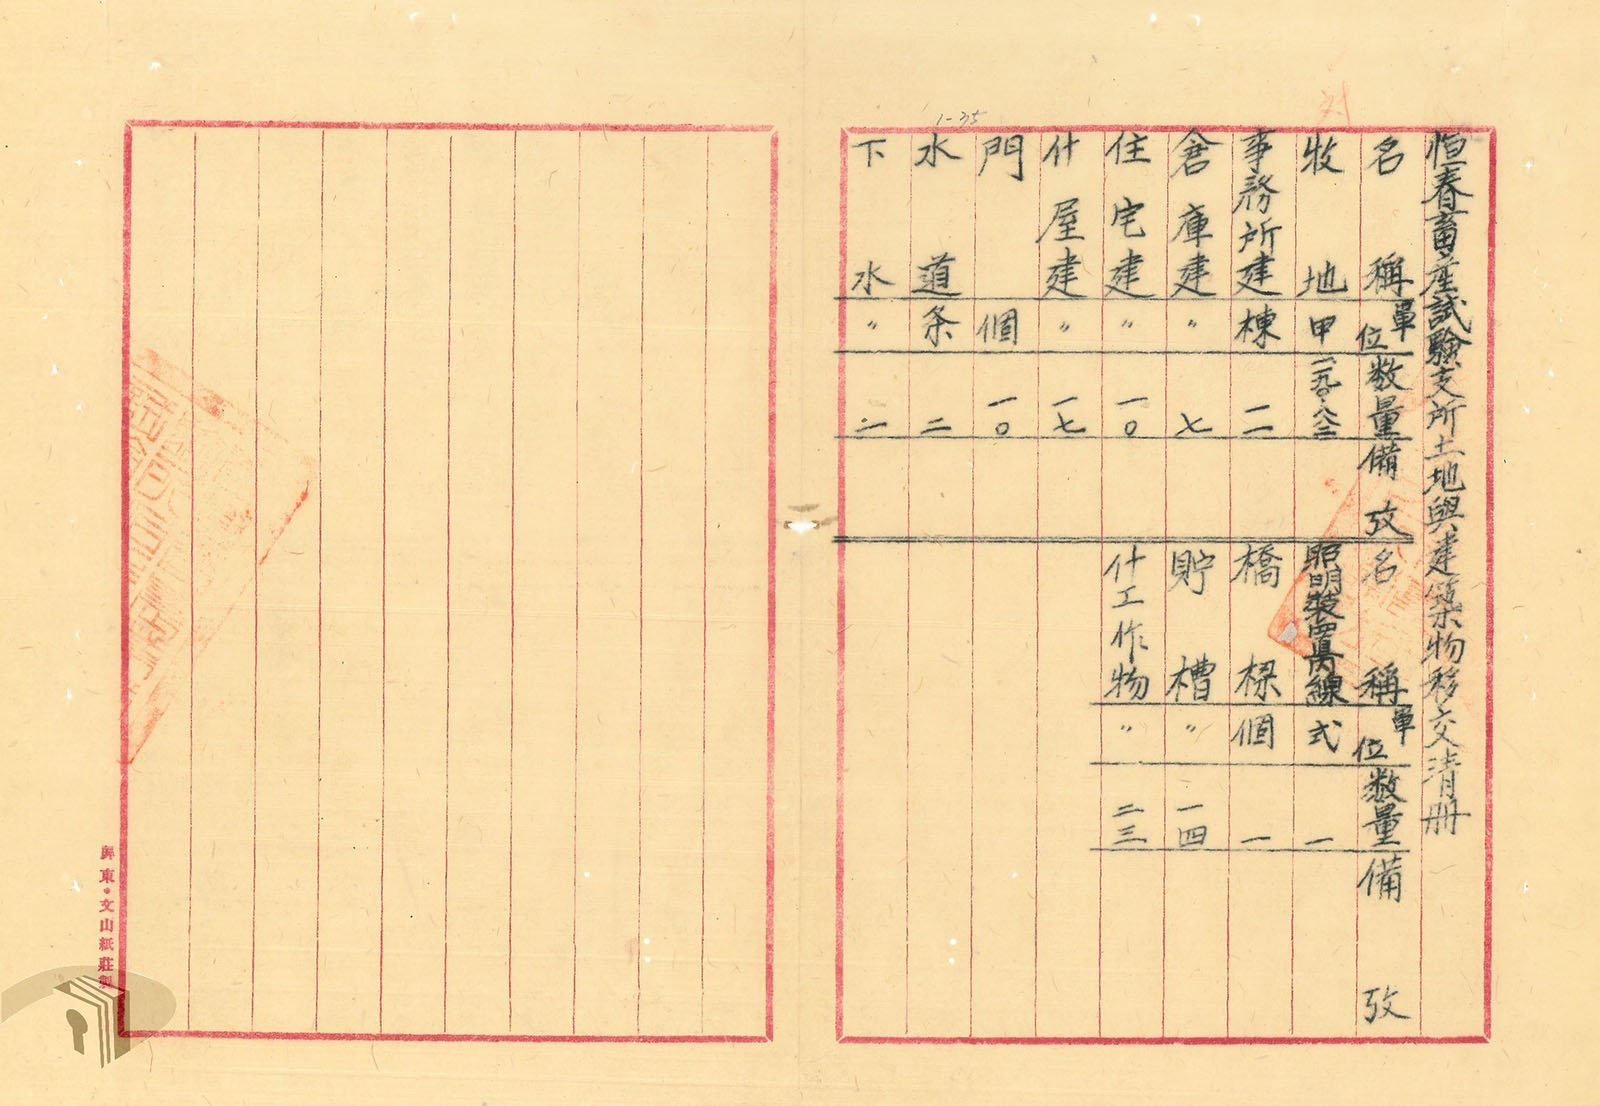 1-35
恒春畜産試驗支所土地與建築物移交清册
名稱 單位 数量 備攷
牧地 甲
事務所建 棟 二
倉庫建 〃 七
住宅建 〃 一〇
什屋建 〃 一七
門 個 一〇
水道 条 二
下水 〃
名稱 單位 数量 備攷
照明装置 線 式 一
橋樑 個 一
貯槽 〃 一四
什工作物 〃 二三
屏東・文山紙莊製